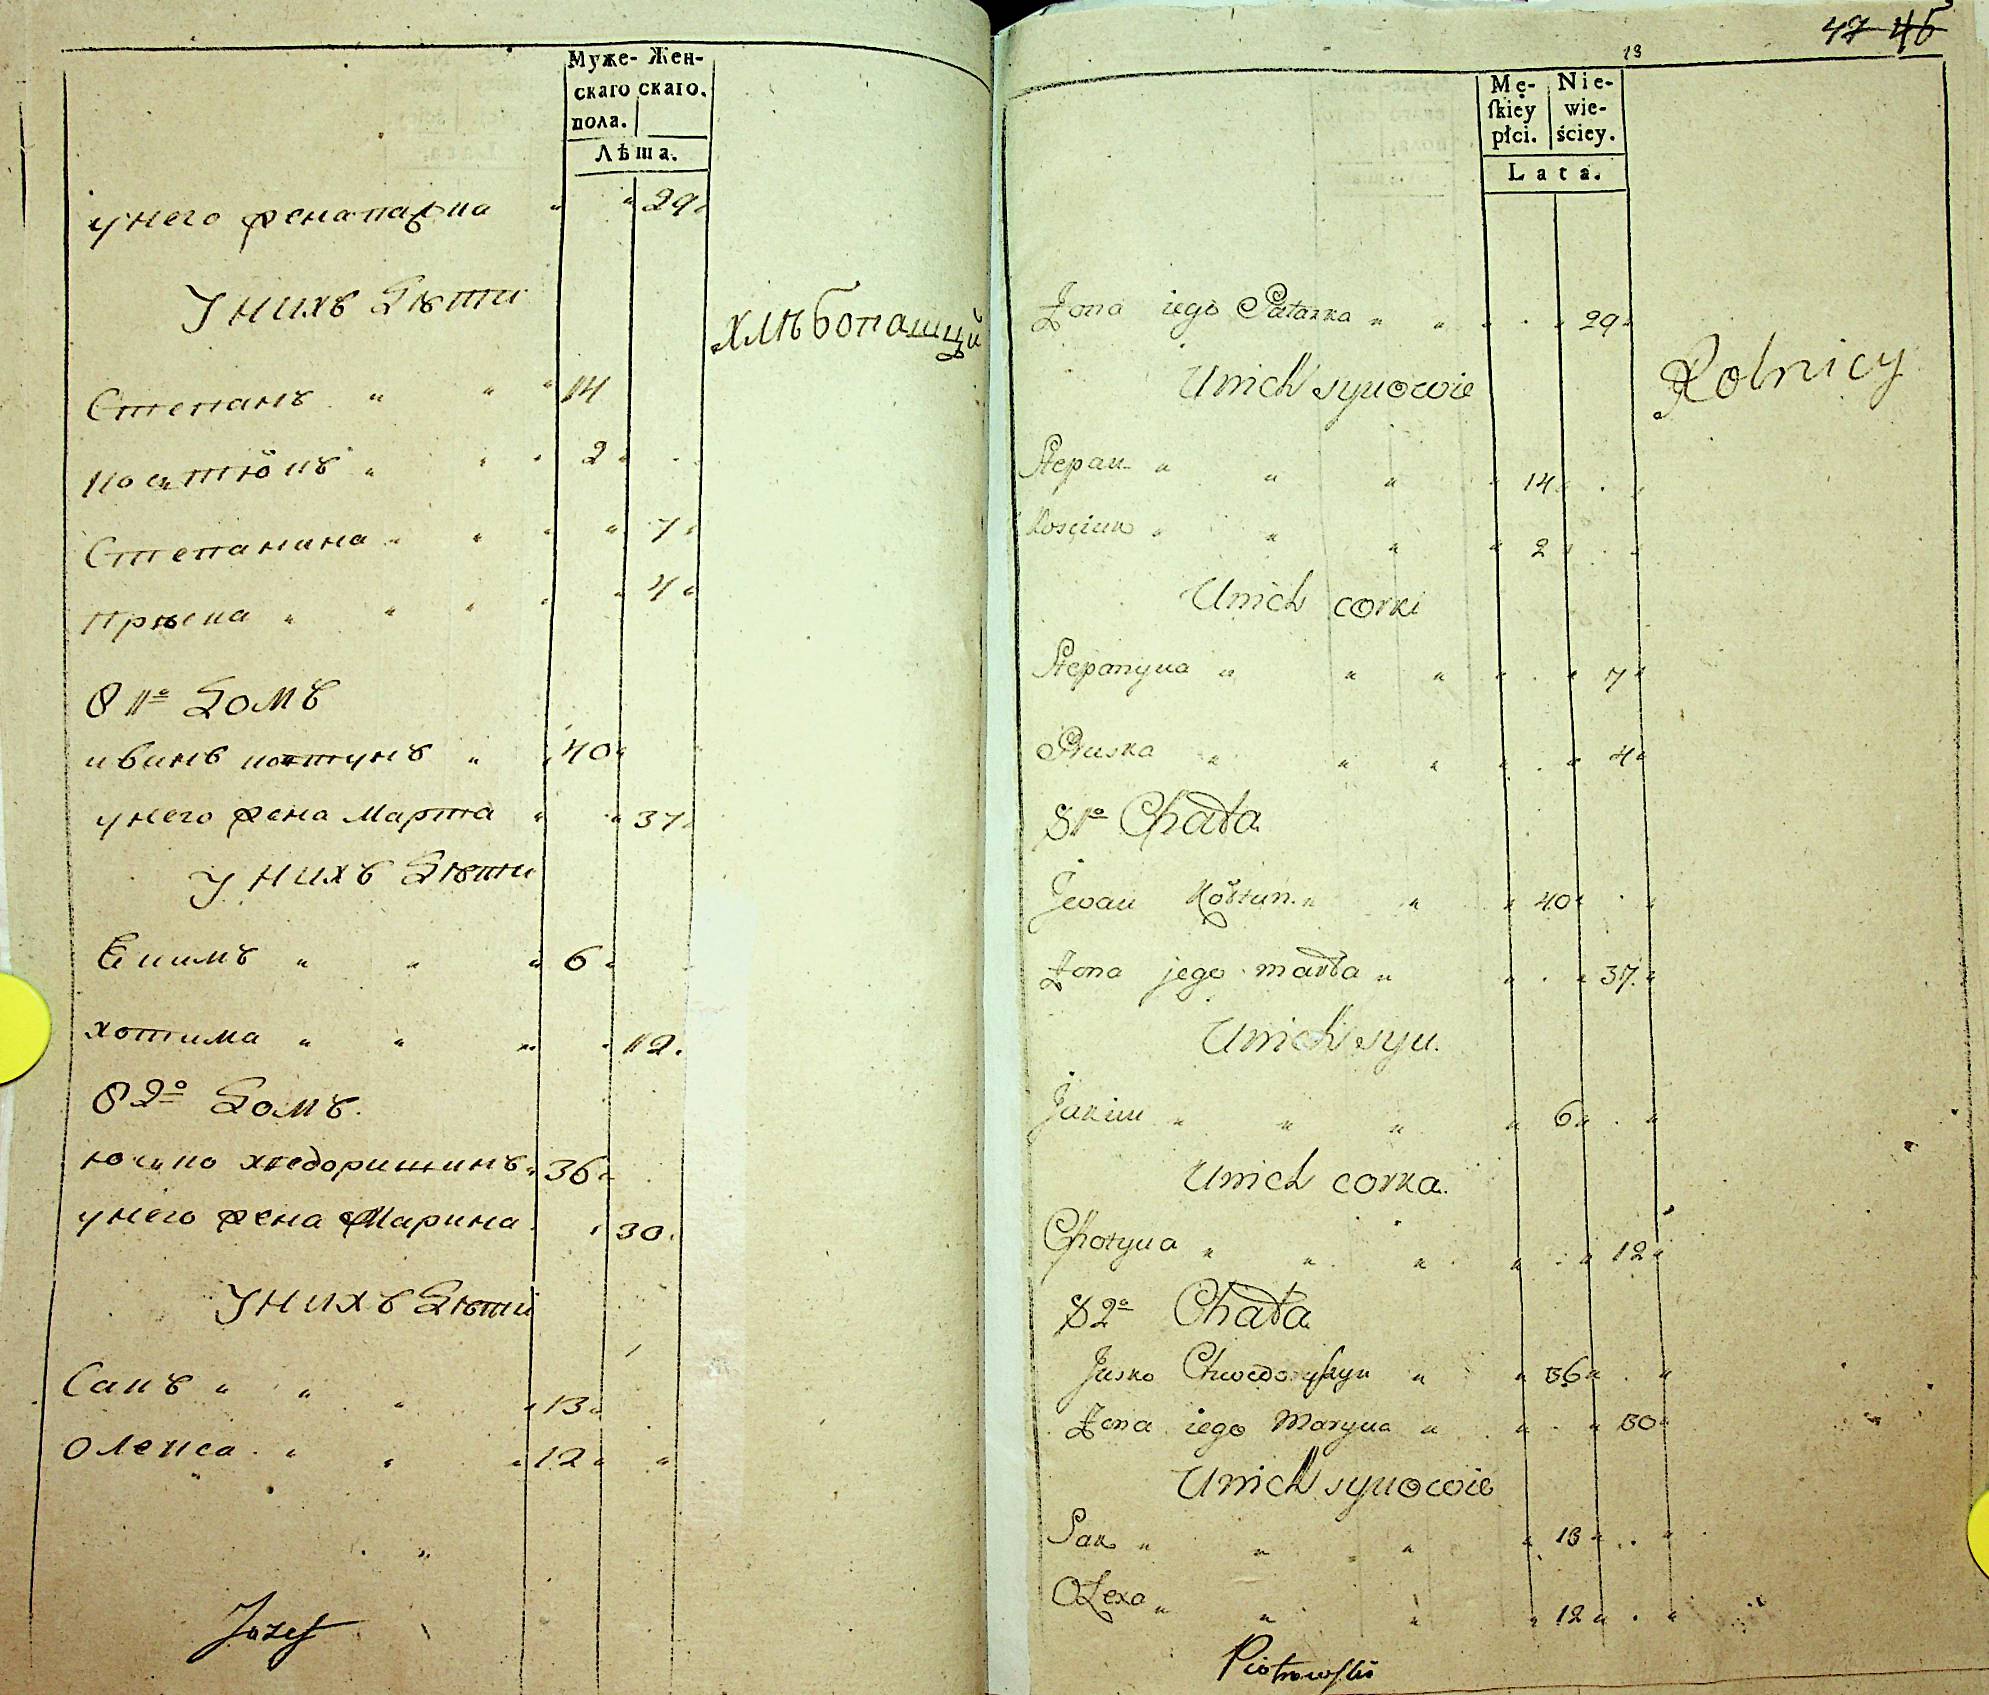 Муже- Жен-
скаго скаго.
пола.
Лѣта.
у него жена палажка 29
У нихъ дѣти
хлѣбопащцй
Степанъ 14
Костюкъ 2
Степанина 7
Прыска 4
81º домъ
иванъ костунъ 40
у него жена Марта 37
У нихъ дѣти
Екимъ 6
хотима 12.
82º домъ.
юско хведоришинъ 36
у него жена Марина 30.
У нихъ дѣти
Сакъ 13
Олекса 12
Jozef
47 45
13
Mę- Nie-
ſkiey wie-
płci. ściey.
Lata.
Żona iego Patarka 29
Rolnicy
U nich synowie
Stepan 14
Kosciuk 2
U nich corki
Stepanyna 7
Pruska 4
81º Chata
Jwan Kostun 40
Żona jego marta 37.
U nich syn.
Jakim 6
U nich corka.
Chotyna 12
82º Chata
Jusko Chwedoryſzyn 36
Żona iego Maryna 30
U nich synowie
Sak 13
Olexa 12
Piotrowſki